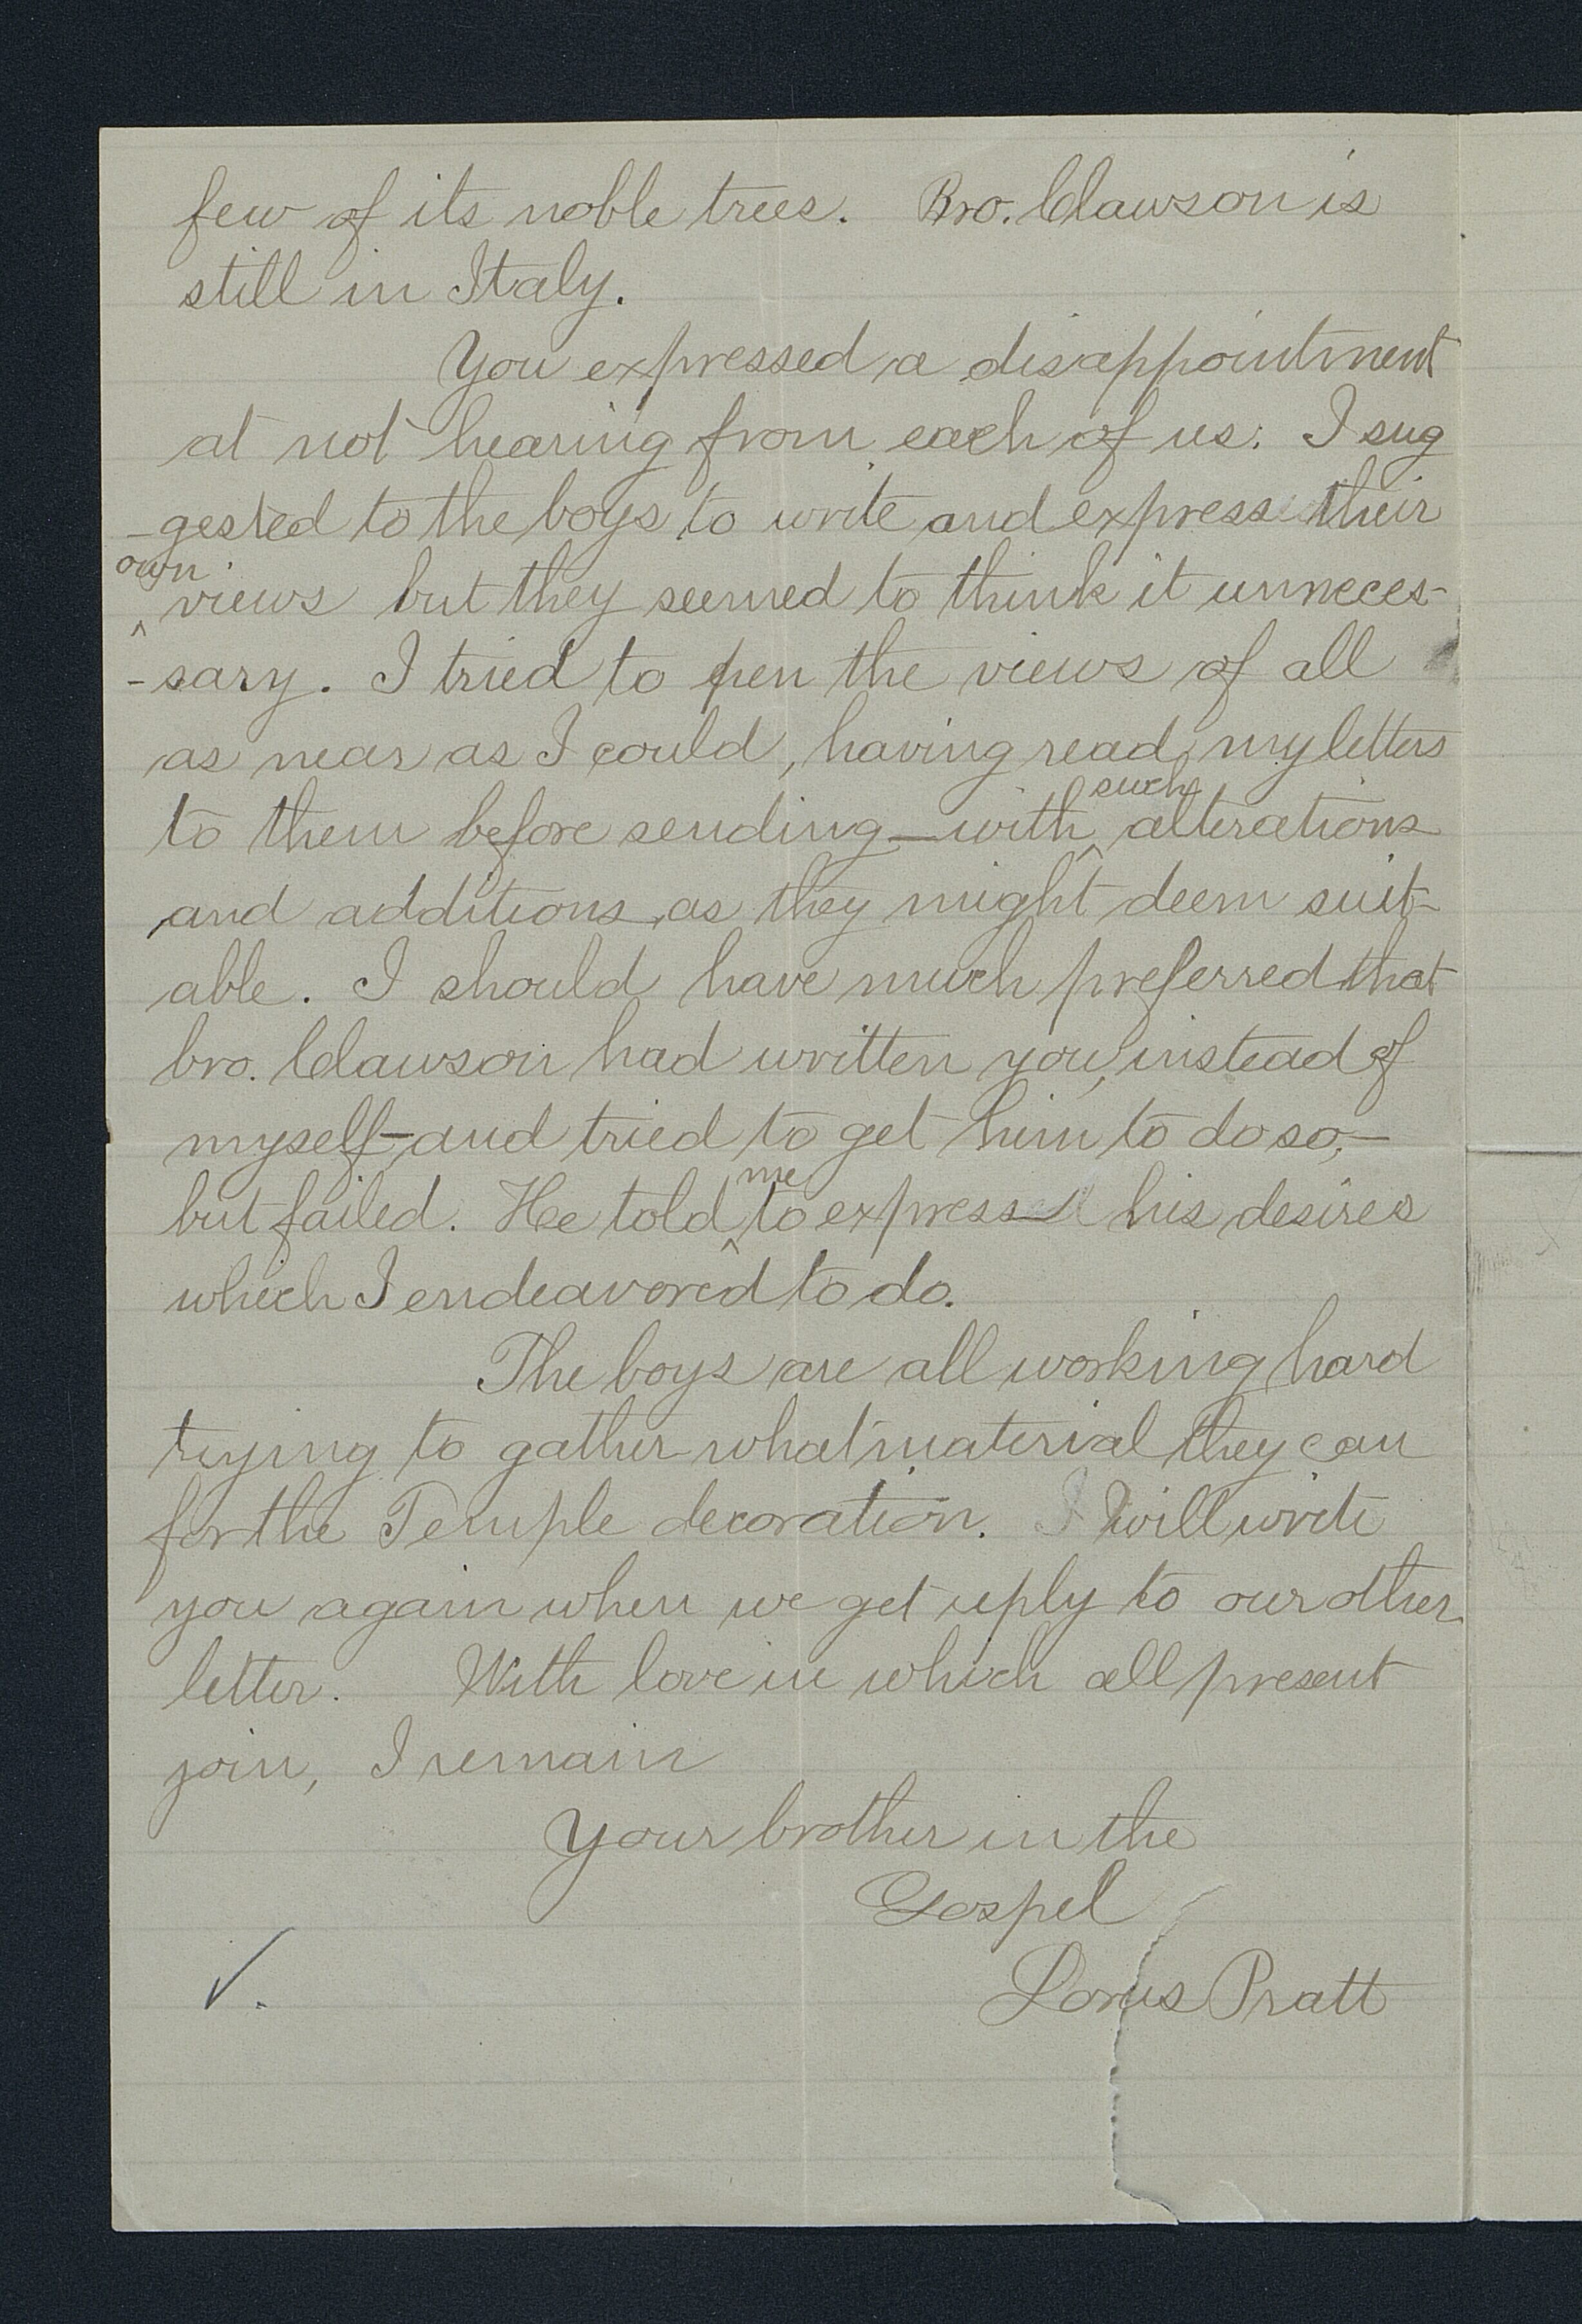 few of its noble trees. Bro. Clawson is
still in Italy.
You expressed a disappointment
at not hearing from each of us. I sug
-gested to the boys to write and express their
own
^ views but they seemed to think it unneces-
-sary. I tried to pen the views of all
as near as I could, having read my letters
such
to them before sending—with ^ alterations
and additions as they might deem suit-
able. I should have much preferred that
bro. Clawson had written you, instead of
myself—and tried to get him to do so,—
me
but failed. He told ^ to express his desires
which I endeavored to do.
The boys are all working hard
trying to gather what material they can
for the Temple decoration. I will write
you again when we get reply to our other
letter. With love in which all present
join, I remain
Your brother in the
Gospel
Lorus Pratt
✓.